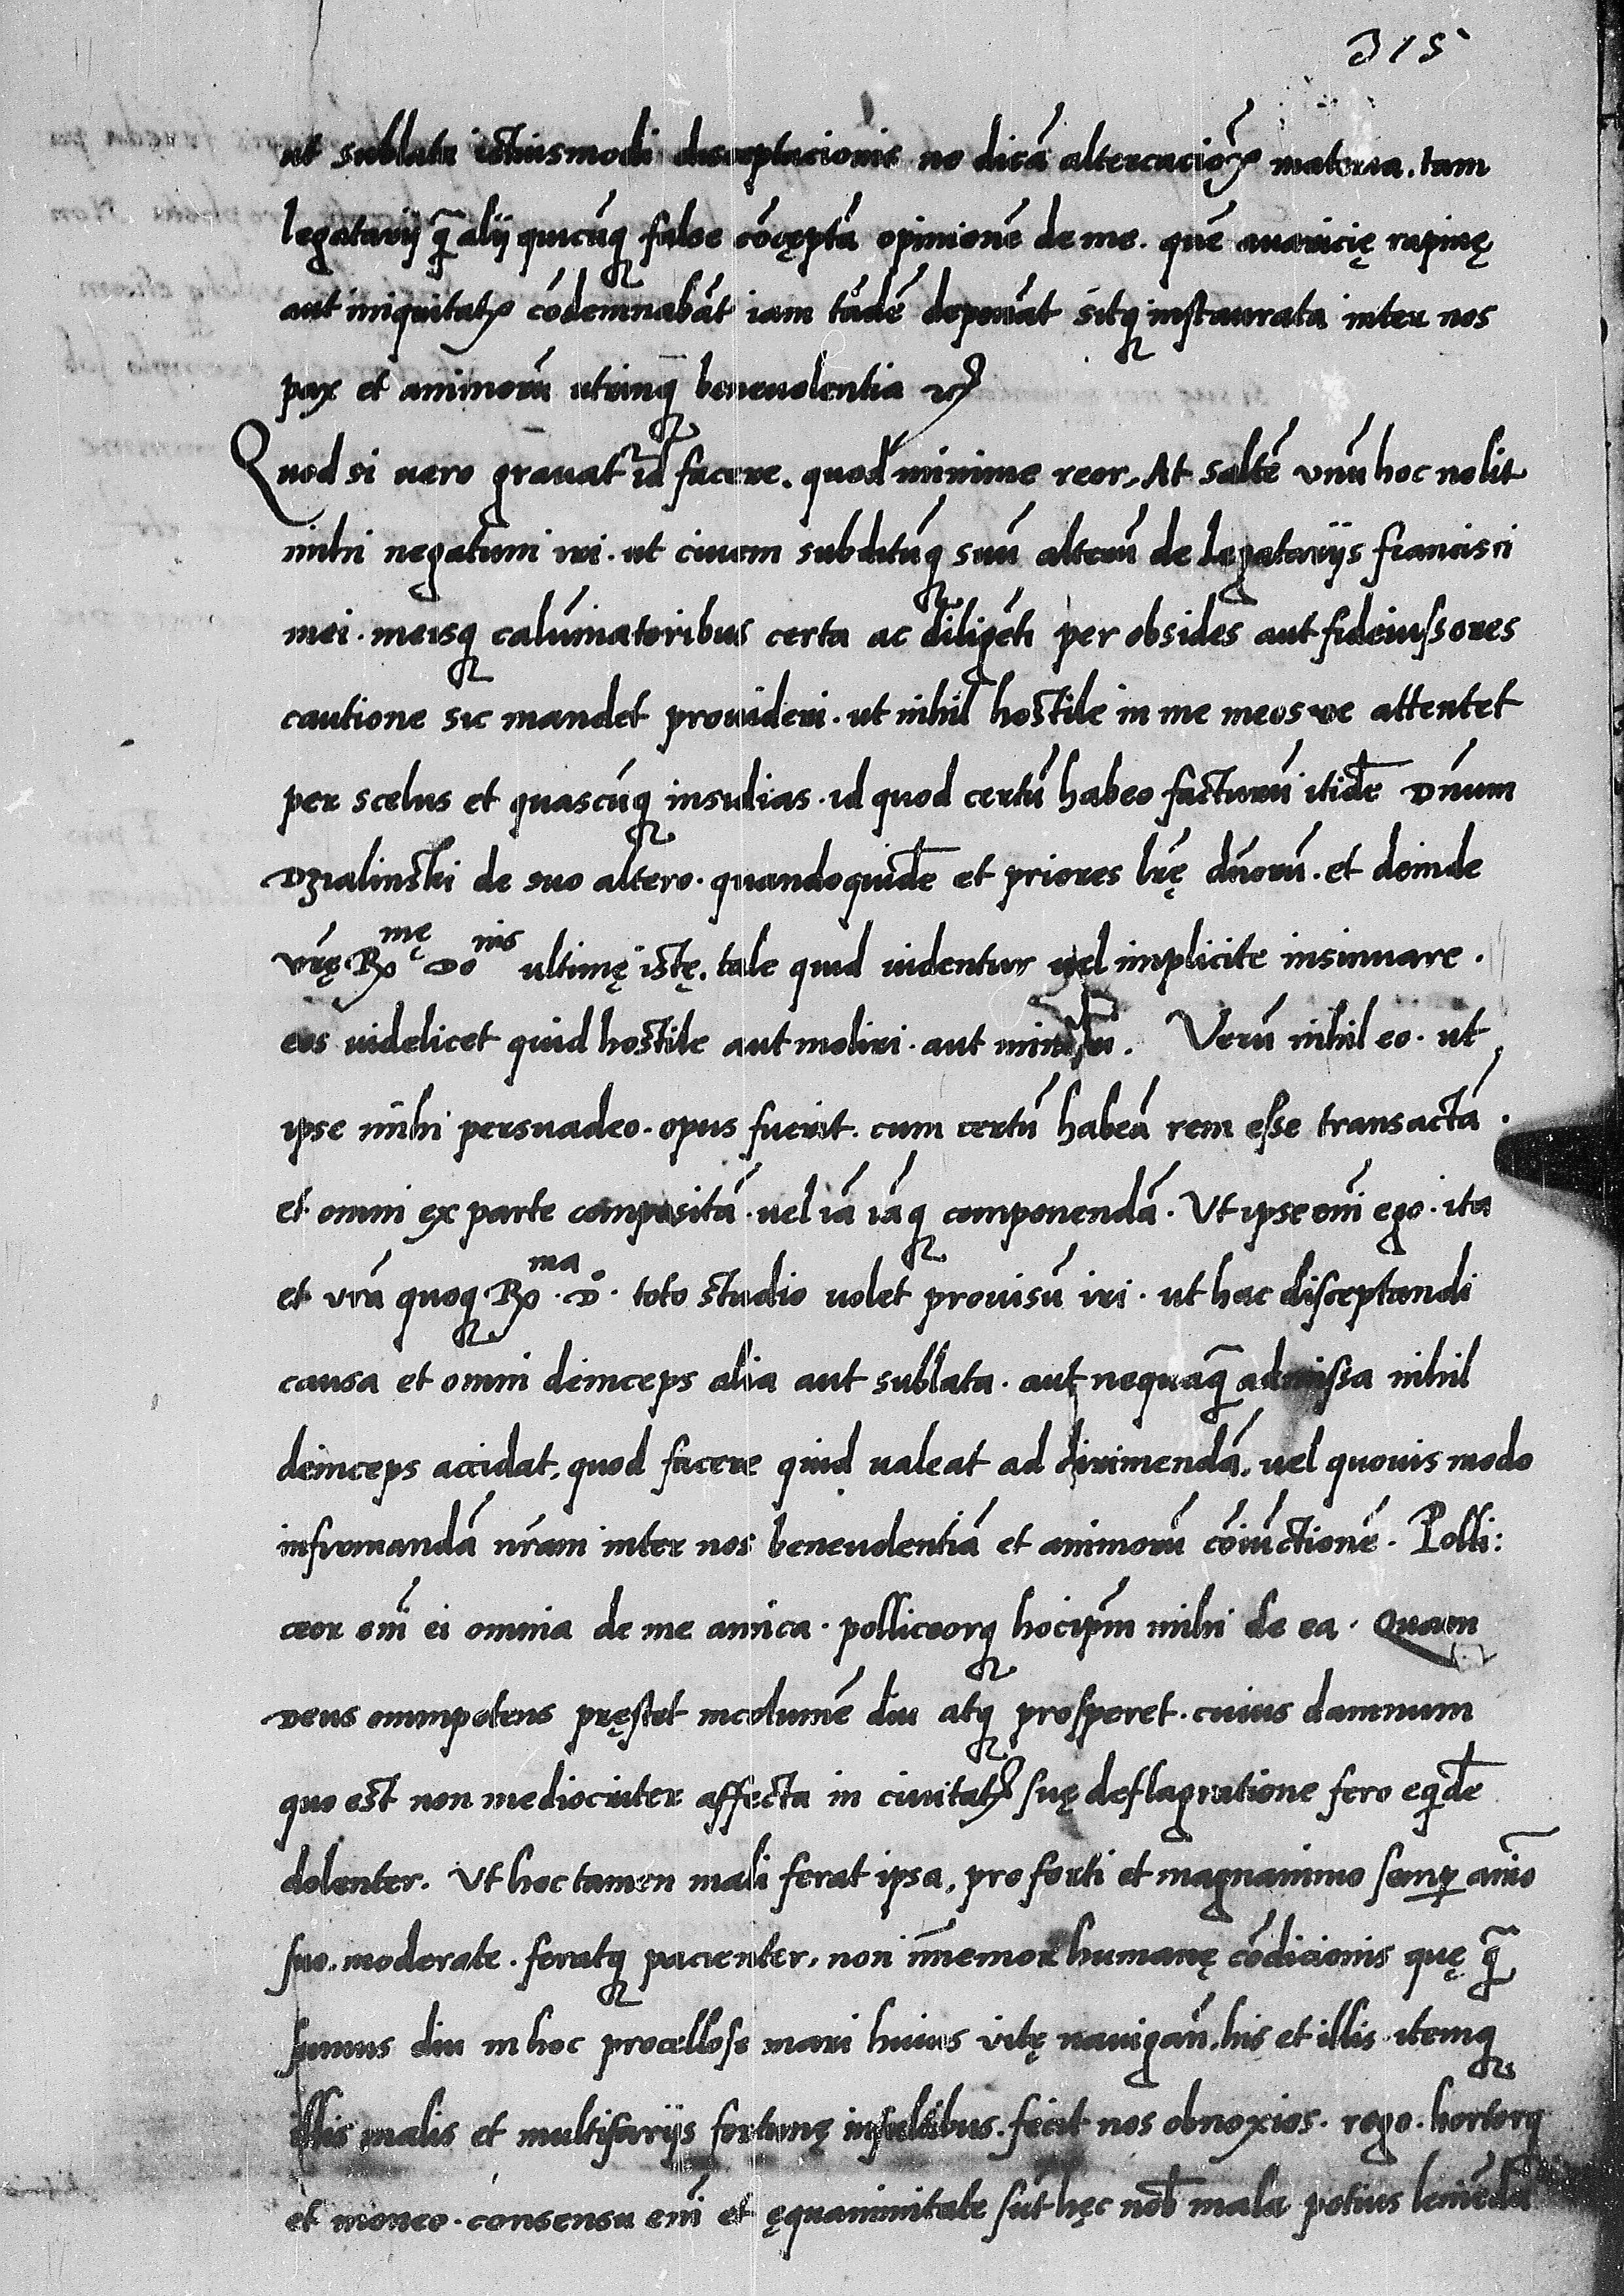 315
ut sublata istiusmodi disceptacionis ne dicā altercaciōꝝ materia. tam
legatarij q̄ alij quicūq false cōcęptā opinionē de me. quē auaricię rapinę
aut iniquitatꝭ cōdemnabāt iam tādē deponāt sitq instaurata inter nos
pax et animorū utrinq beneuolentia ꝛc
Quod si uero grauat᷑ id facere. quod minime reor. At saltē vnū hoc nolit
mihi negatum iri. ut ciuem subditūq suū alterū de legatarijs francisci
mei. meisq calūniatoribus certa ac diligēti per obsides aut fideiussores
cautione sic mandet prouideri. ut nihil hostile in me meos ve attentet
per scelus et quascūq insidias. id quod certū habeo facturū itidē Dn̄um
Dzialinski de suo altero. quandoquidē et priores lr̄ę dn̄orū. et deinde
vr̄ę. R mę Do nis ultimę istę. tale quid uidentur vel implicite insinuare.
eos uidelicet quid hostile aut moliri. aut minari. Verū nihil eo. ut
ipse mihi persuadeo. opus fuerit. cum certū habeā rem esse transactā.
et omni ex parte compositā. uel iā iāq componendā. Ut ipse em̄ ego. ita
et vrā quoq. R ma. D. toto studio uolet prouisū iri. ut hac disceptandi
causa et omni deinceps alia aut sublata. aut nequaq̄ admissa nihil
deinceps accidat. quod facere quid ualeat ad dirimendā. uel quouis modo
infirmandā nr̄am inter nos beneuolentiā et animorū cōiūctionē. Polli:
ceor em̄ ei omnia de me amica. polliceorq hocipm̄ mihi de ea. Quam
Deus omnipotens pręstet incolumē diu atq prosperet. cuius damnum
quo est non mediocriter affecta in ciuitatꝭ suę deflagratione fero eqdē
dolenter. Ut hoc tamen mali ferat ipsa. pro forti et magnanimo semp aīo
suo. moderate. feratq pacienter. non īmemor humanę cōdicionis quę q̄
sumus diu in hoc procelloso mari huius vitę nauigan̄. his et illis itemq
illis malis et multifarijs fortunę insultibus. fecit nos obnoxios. rogo. hortorq
et moneo. consensu em̄ et ęquanimitate sūt hęc nob̄ mala potius leniēda